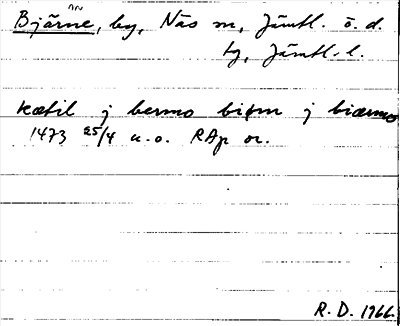 Bjärme, by, Näs sn, Jämtl. ö. d.
tg, Jämtl. l.
kætil j bermo biørn j biærmo
1473 25/4 u.o. RAp or.
R. D. 1966.